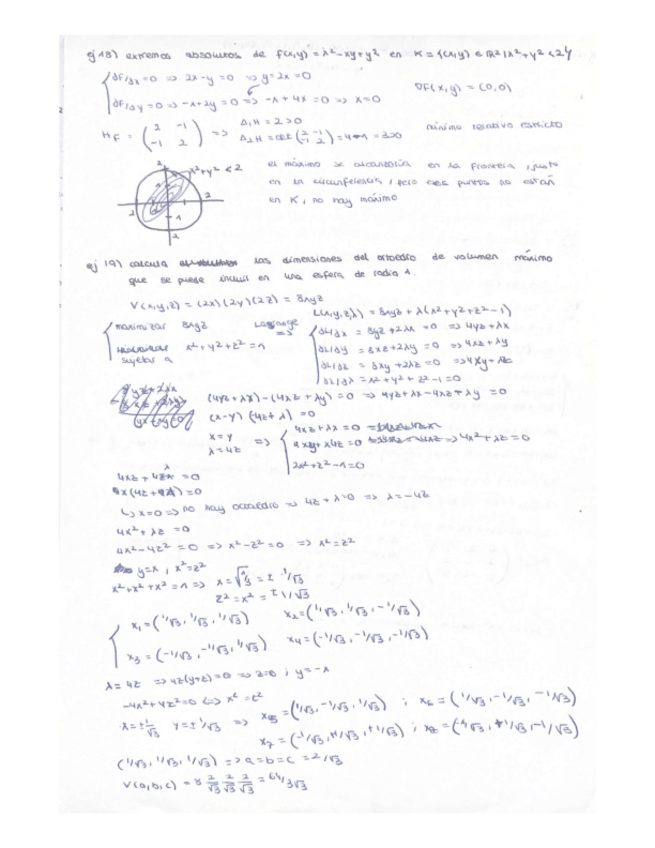 ej 18) extremos absolutos de f(x,y) = x²-xy+y² en K = {(x,y) ∈ R² / x²+y² < 2}
∂F/∂x = 0 => 2x-y = 0 => y = 2x = 0
∂F/∂y = 0 => -x+2y = 0 => -x + 4x = 0 => x = 0
∇F(x,y) = (0,0)
H_F = (2 -1 / -1 2) => Δ₁H = 2 > 0
Δ₂H = det(2 -1 / -1 2) = 4-1 = 3>0
mínimo relativo estricto
x²+y² < 2
el máximo se alcanzaría en la frontera, justo
en la circunferencia, pero esos puntos no están
en K, no hay máximo
ej 19) calcula las dimensiones del ortoedro de volumen máximo
que se puede incluir en una esfera de radio 1.
V(x,y,z) = (2x)(2y)(2z) = 8xyz
maximizar 8xyz
sujetar a x²+y²+z² = 1
Lagrange =>
L(x,y,z,λ) = 8xyz + λ(x²+y²+z²-1)
∂L/∂x = 8yz+2λx = 0 => 4yz+λx
∂L/∂y = 8xz+2λy = 0 => 4xz+λy
∂L/∂z = 8xy+2λz = 0 => 4xy+λz
∂L/∂λ = x²+y²+z²-1 = 0
(4yz+λx)-(4xz+λy) = 0 => 4yz+λx-4xz-λy = 0
(x-y)(-4z+λ) = 0
x = y
λ = 4z
=>
4xz+λx = 0
=> 4x²+λz = 0
2x²+z²-1 = 0
4xz + λx = 0
x(4z+λ) = 0
↳ x=0 => no hay octoedro => 4z+λ=0 => λ=-4z
4x²+λz = 0
4x²-4z² = 0 => x²-z² = 0 => x² = z²
y=x, x²=z²
x²+x²+x² = 1 => x = √⅓ = ± 1/√3
z² = x² = ± 1/√3
x₁ = (1/√3, 1/√3, 1/√3) x₂ = (1/√3, 1/√3, -1/√3)
x₃ = (-1/√3, -1/√3, 1/√3) x₄ = (-1/√3, -1/√3, -1/√3)
λ = 4z => 4z(y+z)=0 => z=0; y=-x
-4x²+4z²=0 <=> x² = z²
x = ±1/√3 y = ±1/√3 => x₅ = (1/√3, -1/√3, 1/√3) ; x₆ = (1/√3, -1/√3, -1/√3)
x₇ = (-1/√3, 1/√3, +1/√3) ; x₈ = (-1/√3, 1/√3, -1/√3)
(1/√3, 1/√3, 1/√3) => a=b=c = 2/√3
V(a,b,c) = 8 2/√3 2/√3 2/√3 = 64/3√3